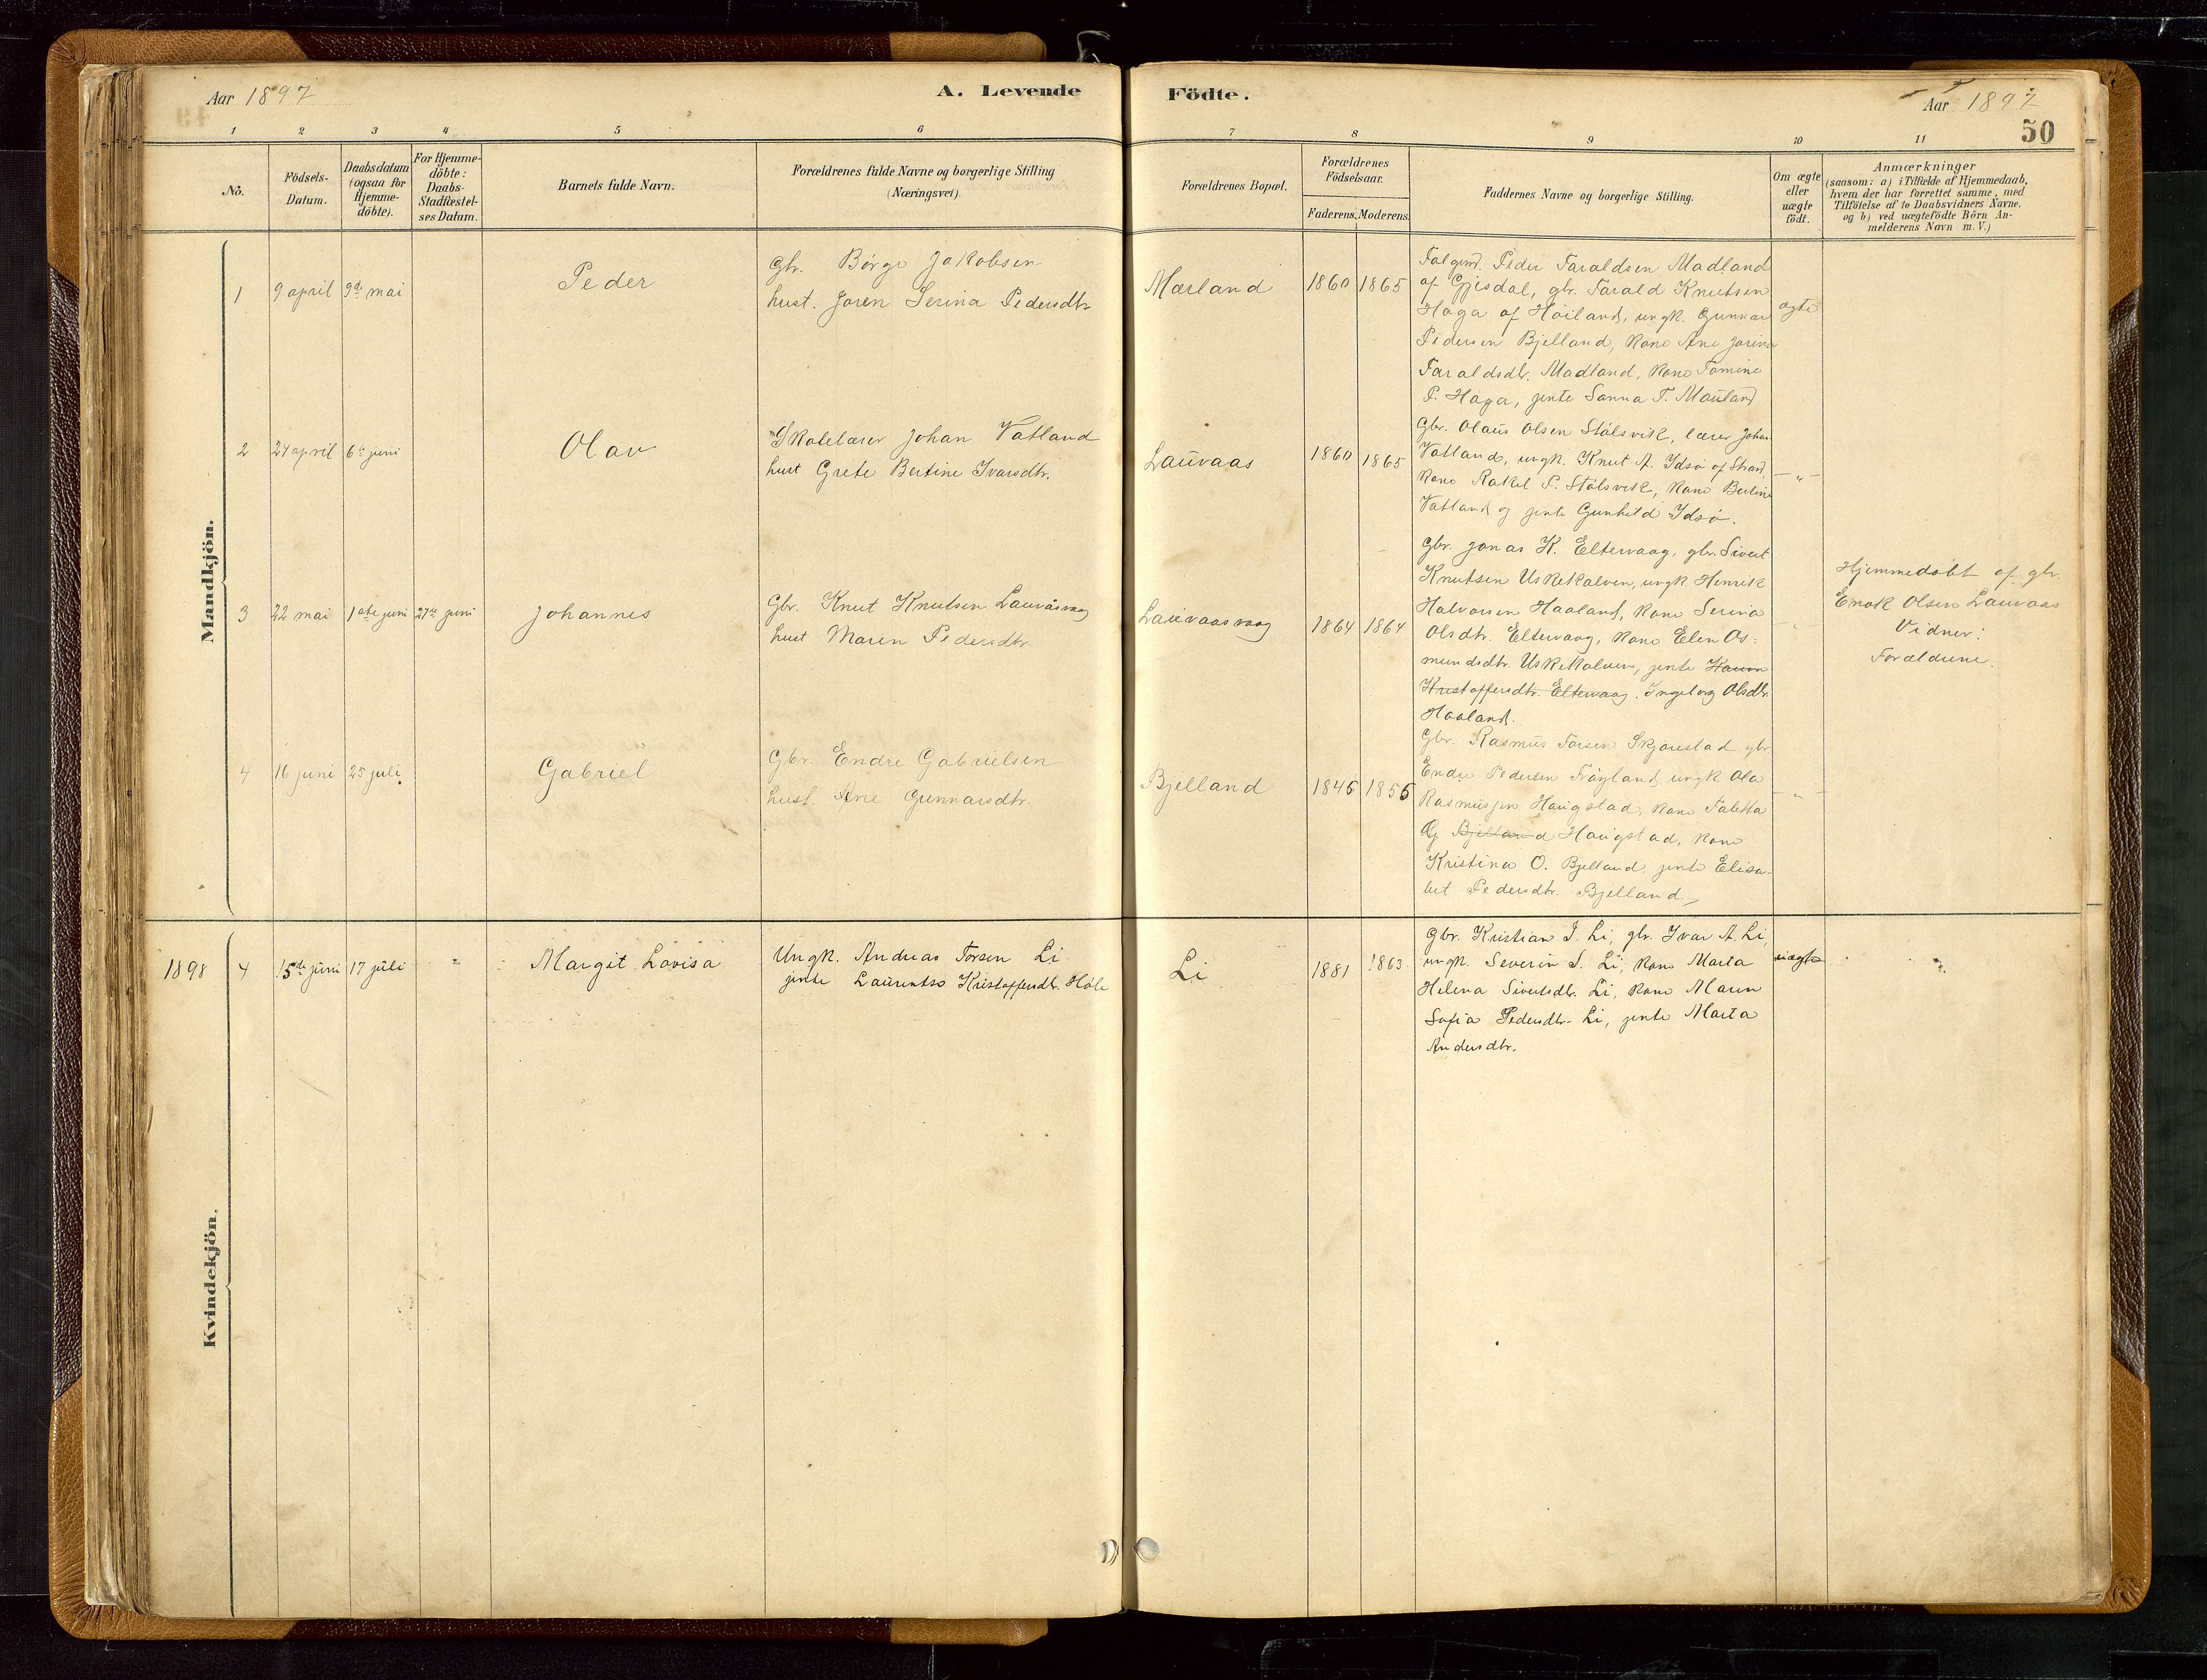 Aar 1897
A. Levende Födte.
Aar 1897
50
1 2 3 4 5 6 7 8 9 10 11
No.
Födsels-
Datum.
Daabsdatum
(ogsaa for
Hjemme-
döbte).
For Hjemme-
döbte:
Daabs-
Stadfæstel-
ses Datum.
Barnets fulde Navn.
Forældrenes fulde Navne og borgerlige Stilling
(Næringsvei).
Forældrenes Bopæl.
Forældrenes
Födselsaar.
Faderens. Moderens.
Faddernes Navne og borgerlige Stilling.
Om ægte
eller
uægte
født.
Anmærkninger
(saasom: a) i Tilfælde af Hjemmedaab,
hvem der har forrettet samme, med
Tilföielse af to Daabsvidners Navne,
og b) ved uægtefödte Börn An-
melderens Navn m. V.)
Mandkjön.
1 9 april 9de mai Peder
Gbr. Børge Jakobsen
hust. Joren Serina Pedersdtr
Mærland 1860 1865
Peder Taraldsen Madland
af Gjesdal, gbr. Tarald Knutsen
Haga af Höiland, ungk. Gunnar
Pedersen Bjelland, kone Ane Jorina
Taraldsdtr. Madland, kone Tomine
P. Haga, jente Sanna T. Mauland
ægte
2 24 april 6te juni Olav
Skolelærer Johan Vatland
hust Grete Bertine Ivarsdtr.
Lauvaas 1860 1865
Gbr. Olaus Olsen Stålsvik, lærer Johan
Vatland, ungk. Knut A. Idsø af Strand,
kone Rakel S. Stålsvik, kone Bertine
Vatland og jente Gunhild Idsø.
– " –
3 22 mai 1ste juni 27de juni Johannes
Gbr. Knut Knutsen Lauvåsvaag
hust Maren Pedersdtr.
Lauvaasvaag 1864 1864
Gbr. Jonas K. Eltervaag, gbr. Sivert
Knutsen Uskekalven, ungk. Henrik
Halvorsen Haaland, kone Serina
Olsdtr. Eltervaag, kone Elen Os-
mundsdtr. Uskekalven, jente
Kristoffersdtr. Eltervaag. Ingeborg Olsdtr.
Haaland.
– " –
Hjemmedøbt af gbr.
Enok Olsen Lauvaas
Vidner:
Forældrene.
4 16 juni 25 juli Gabriel
Gbr. Endre Gabrielsen
hust. Ane Gunnarsdtr.
Bjelland 1846 1856
Gbr. Rasmus Torsen Skjørestad gbr
Endre Pedersen Frøyland, ungk. Ola
Rasmussen Haugstad, kone Taletta
G. Bjelland Haugstad, kone
Kristina O. Bjelland, jente Elisa-
bet Pedersdtr. Bjelland
– " –
Kvindekjön.
1898 4 15de juni 17 juli " Margit Lovisa
Ungk. Andreas Torsen Li
jente Laurentse Kristoffersdtr. Høle
Li 1881 1863
Gbr. Kristian I. Li, gbr. Ivar A. Li,
ungk. Severin S. Li, kone Marta
Helena Sivertsdtr. Li, kone Maren
Sofia Pedersdtr. Li, jente Marta
Andersdtr.
uægte